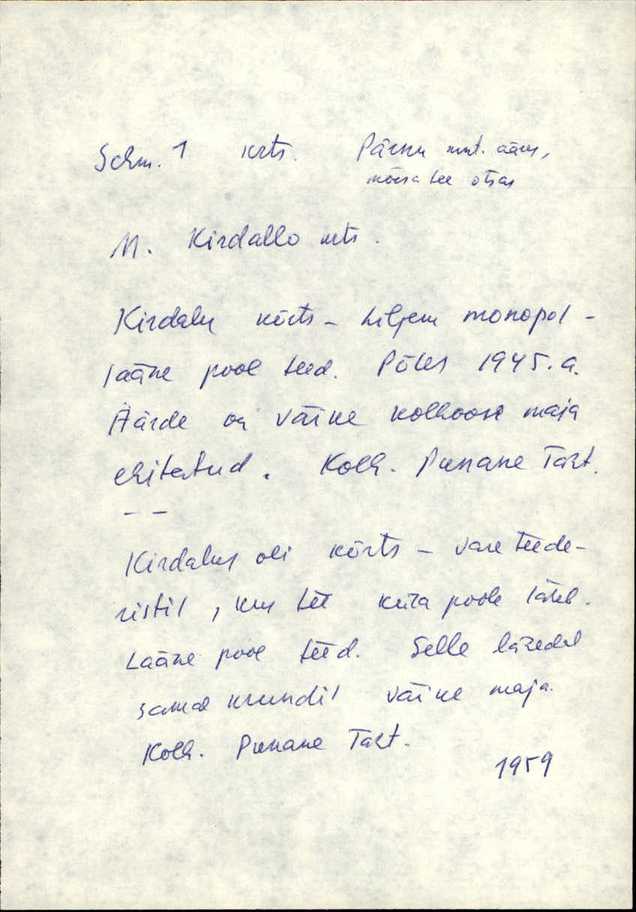 Schm. 1 krts. Pärnu mnt. ääres,
mõisa tee otsas
M. Kirdallo krts.
Kirdalu kõrts – hiljem monopol –
lääne pool teed. Põles 1945. a.
Äärde on väike kolhoosi maja
ehitatud. Kolh. Punane Täht.
– –
Kirdalus oli kõrts – vare teede-
ristil, kus tee Keila poole läheb.
Lääne pool teed. Selle lähedal
samal krundil väike maja.
Kolh. Punane Täht.
1959